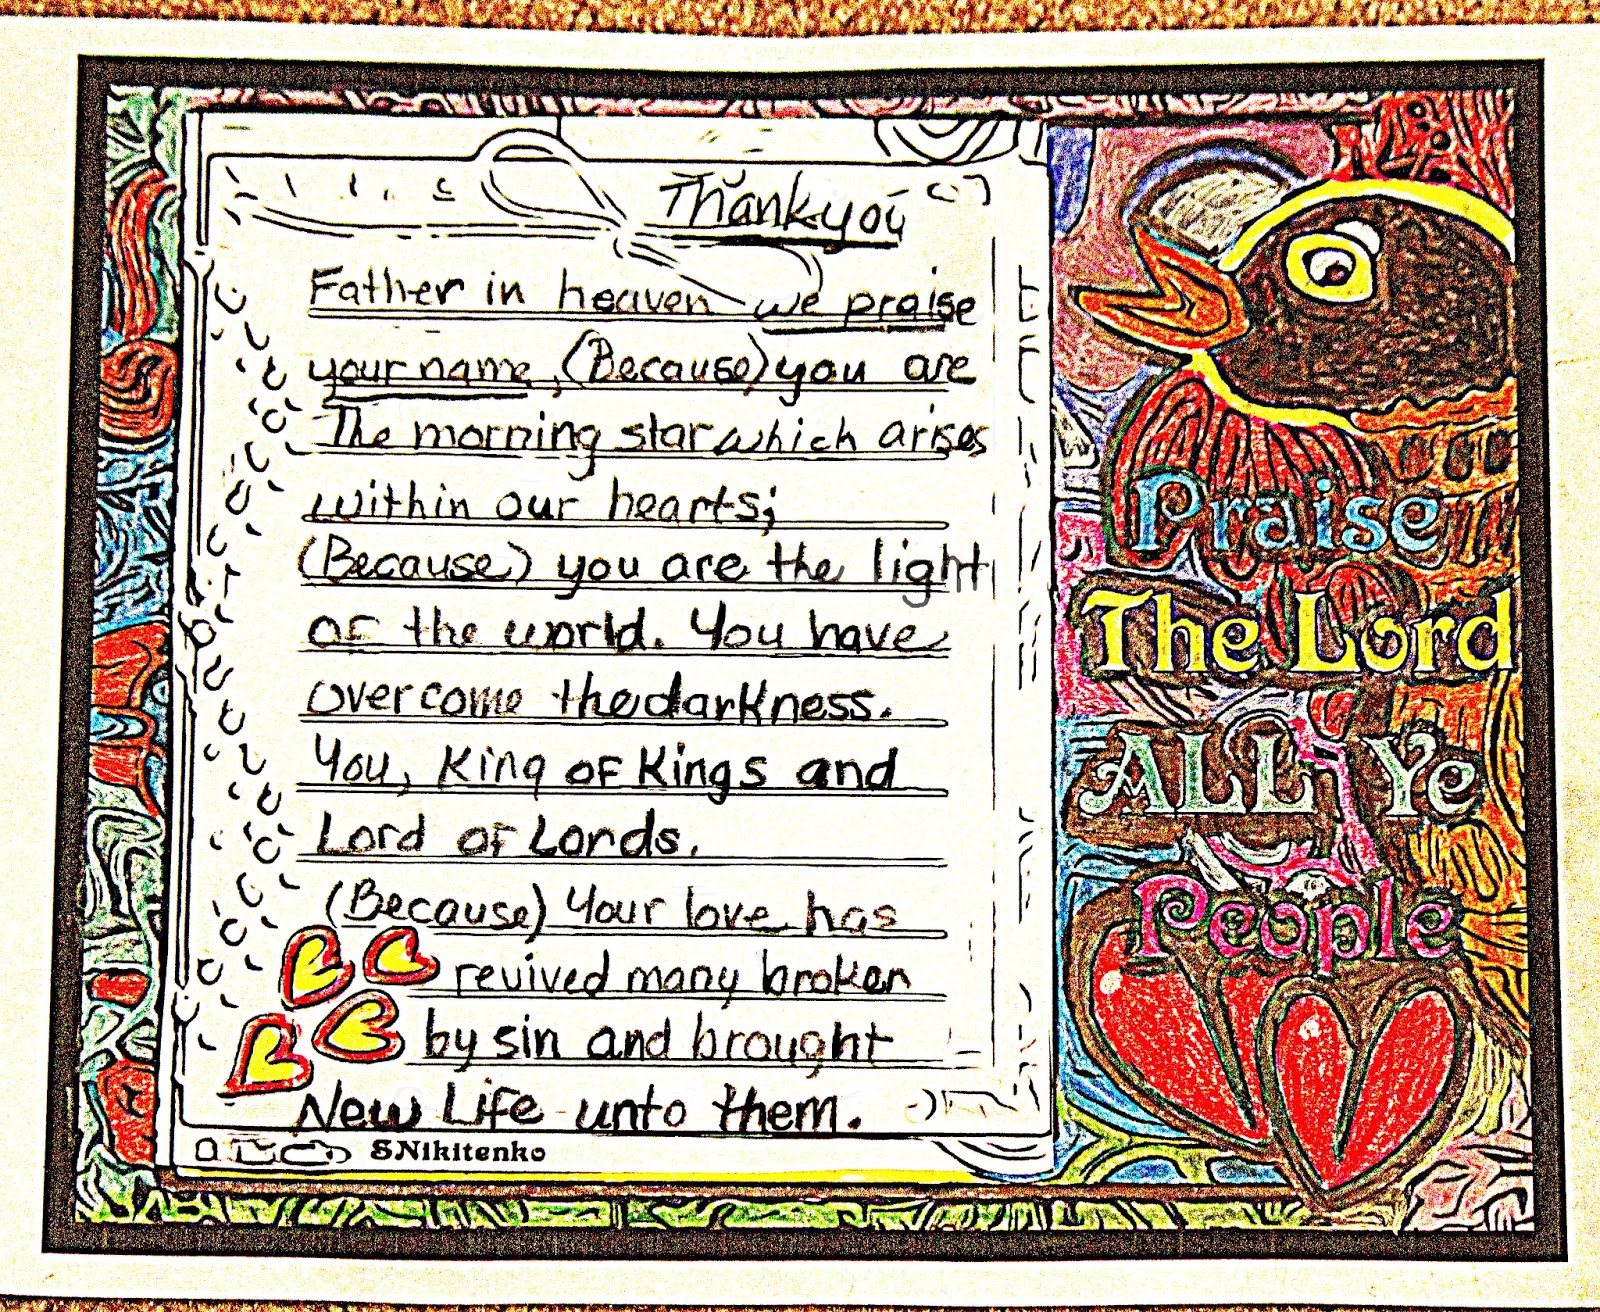 Thankyou
Father in heaven we praise
your name, (Because) you are
The morning star which arises
within our hearts;
(Because) you are the light
of the world. You have
overcome the darkness.
You, King of Kings and
Lord of Lords.
(Because) Your love has
revived many broken
by sin and brought
New Life unto them.
SNikitenko
Praise
The Lord
ALL Ye
People